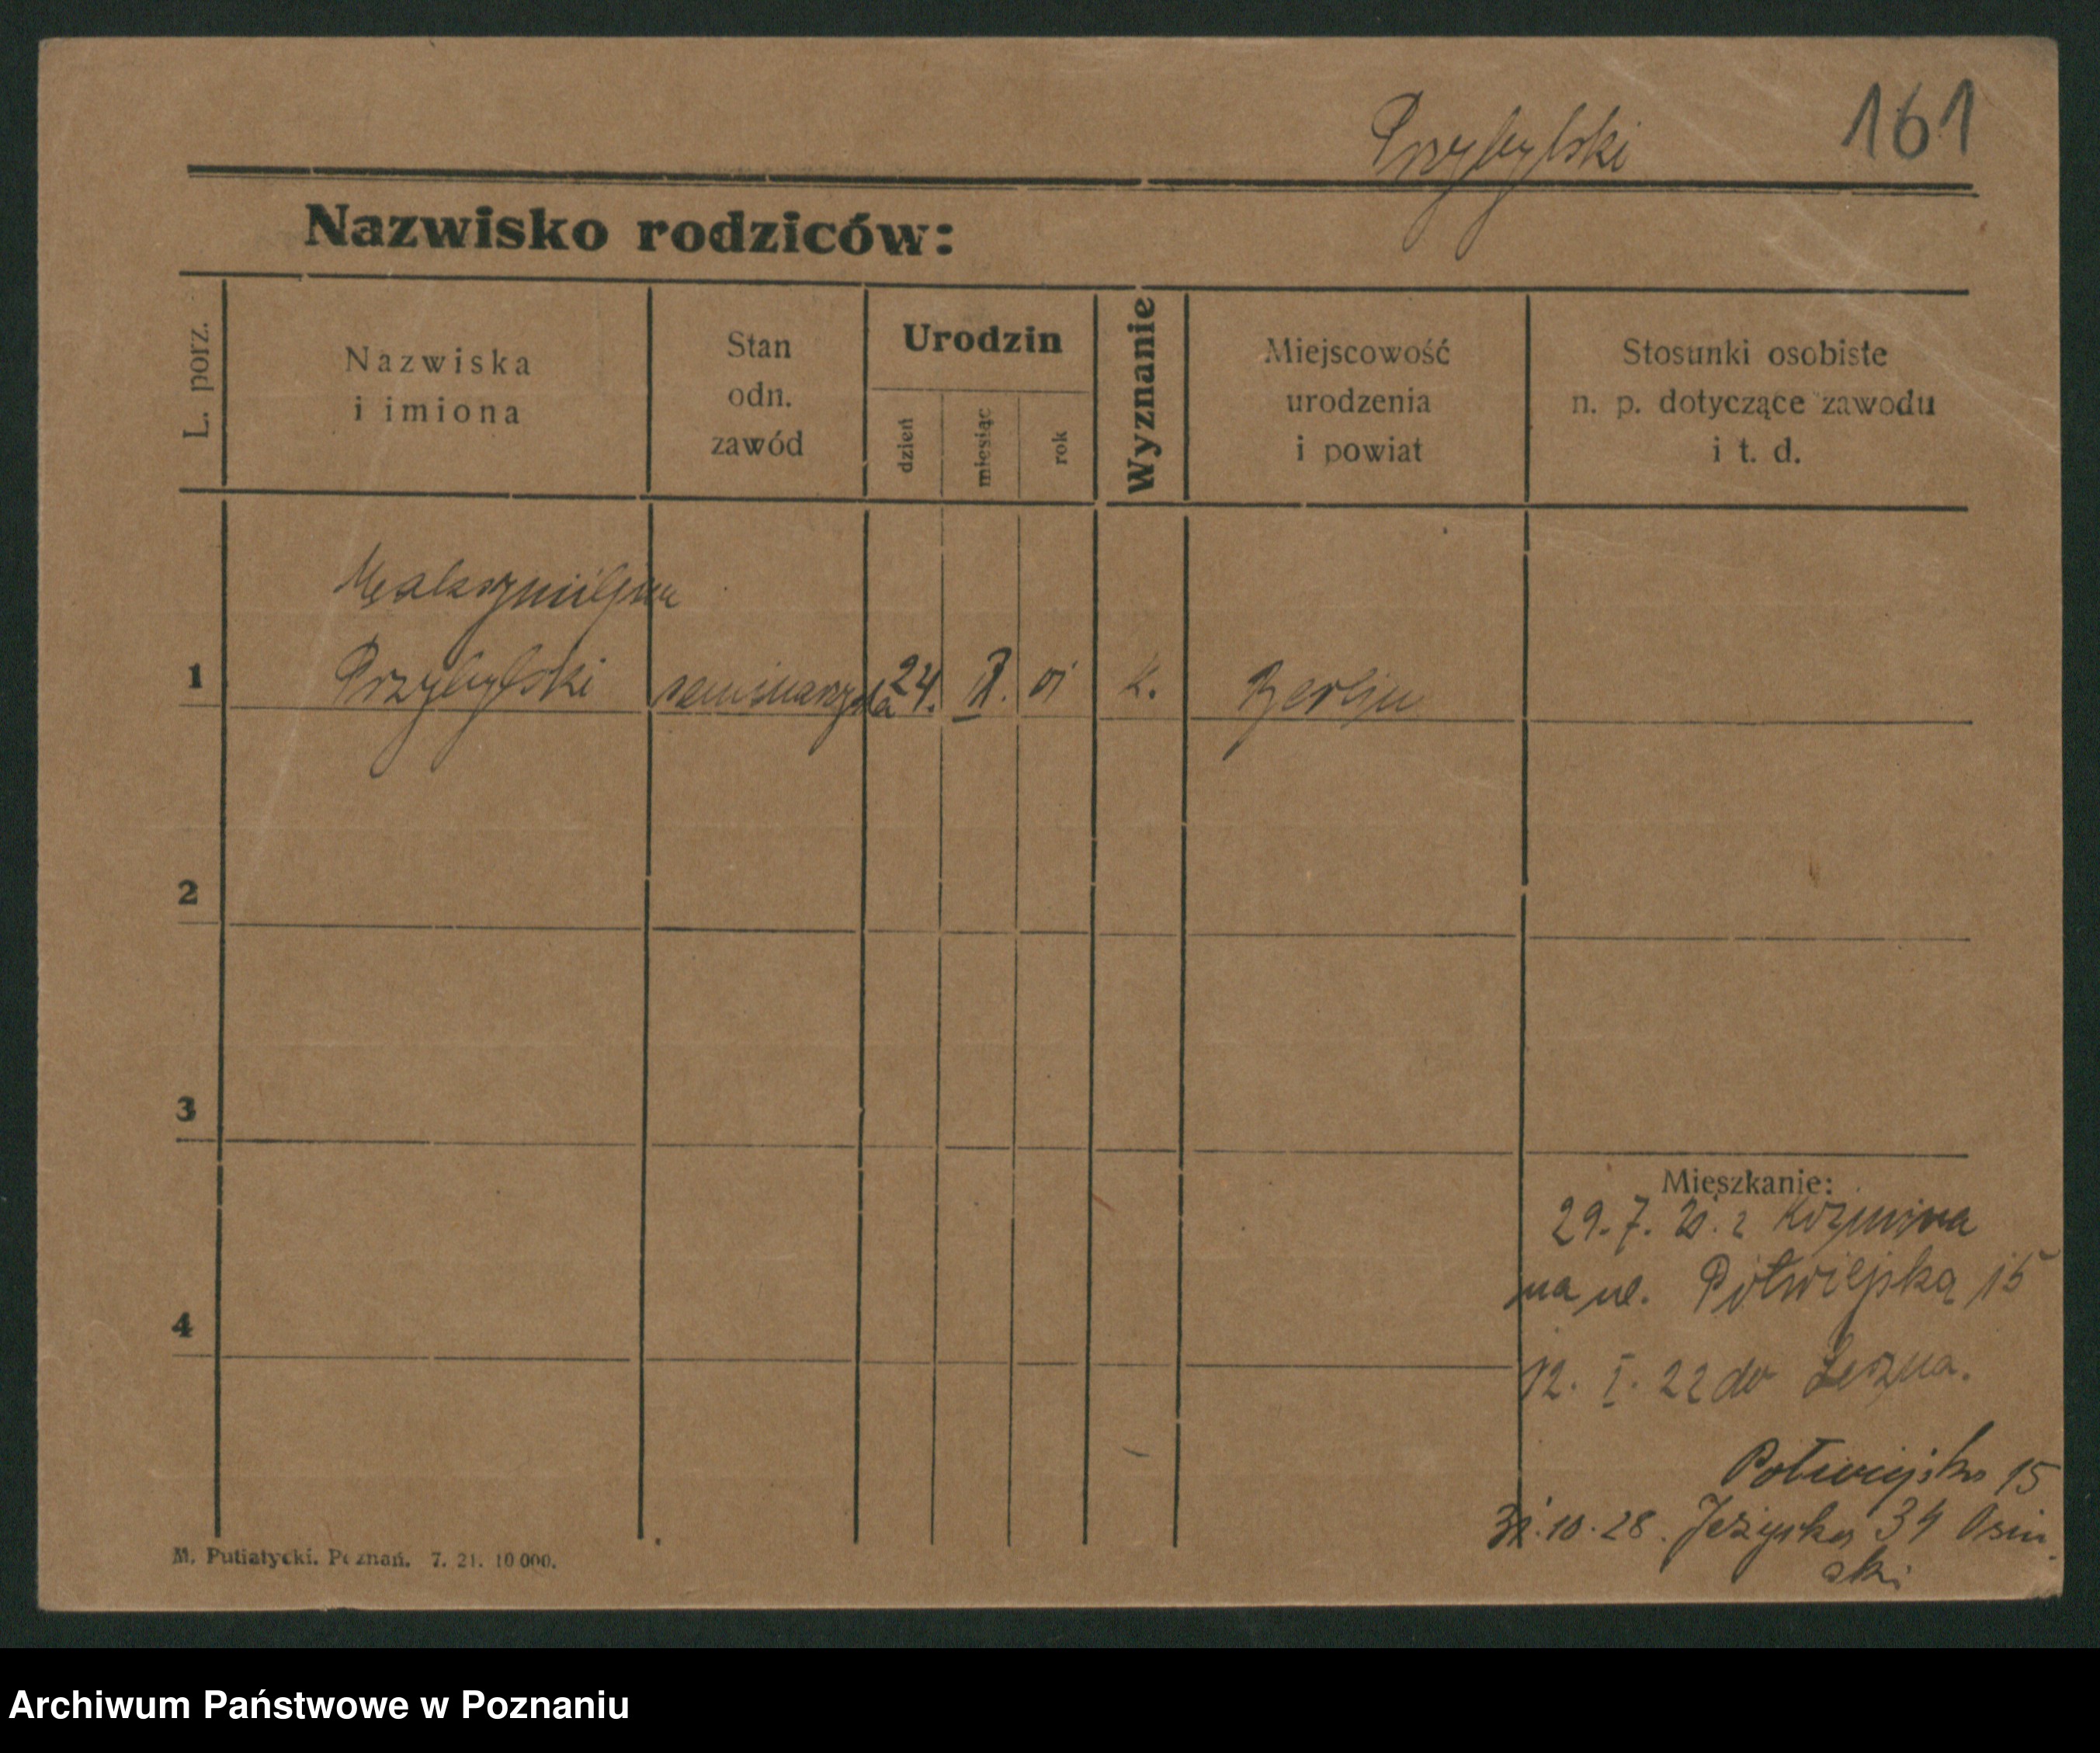 Przybylski 161
Nazwisko rodziców:
L. porz.
Nazwiska
i imiona
Stan
odn.
zawód
Urodzin
dzień
miesiąc
rok
Wyznanie
Miejscowość
urodzenia
i powiat
Stosunki osobiste
n. p. dotyczące zawodu
i t. d.
Maksymiljan
1 Przybylski seminarzysta 24. 01 k. Berlin
2
3
4
Mieszkanie:
29. 7. z Koźmina
na ul. Półwiejską 15
12. I. 22 do
Półwiejska 15
10. 28. Jeżycka 34 Osiń
ski
M. Putiatycki. Poznań. 7. 21. 10 000.
Archiwum Państwowe w Poznaniu